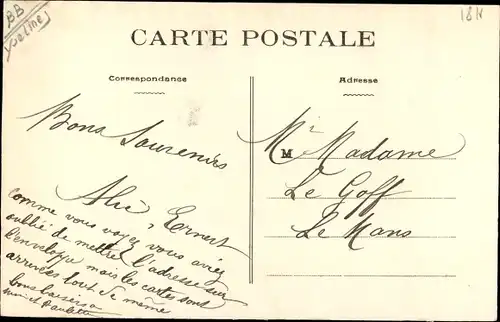 BB
Yveline
18 k
CARTE POSTALE
Correspondance
Adresse
Bons Souvenirs
Ernest
comme vous voyez vous aviez
oublié de mettre l'adresse sur
l'enveloppe mais les cartes sont
arrivées tout de même
bons baisers a
et Paulette
Mr M Madame
Le Goff
Le Mans